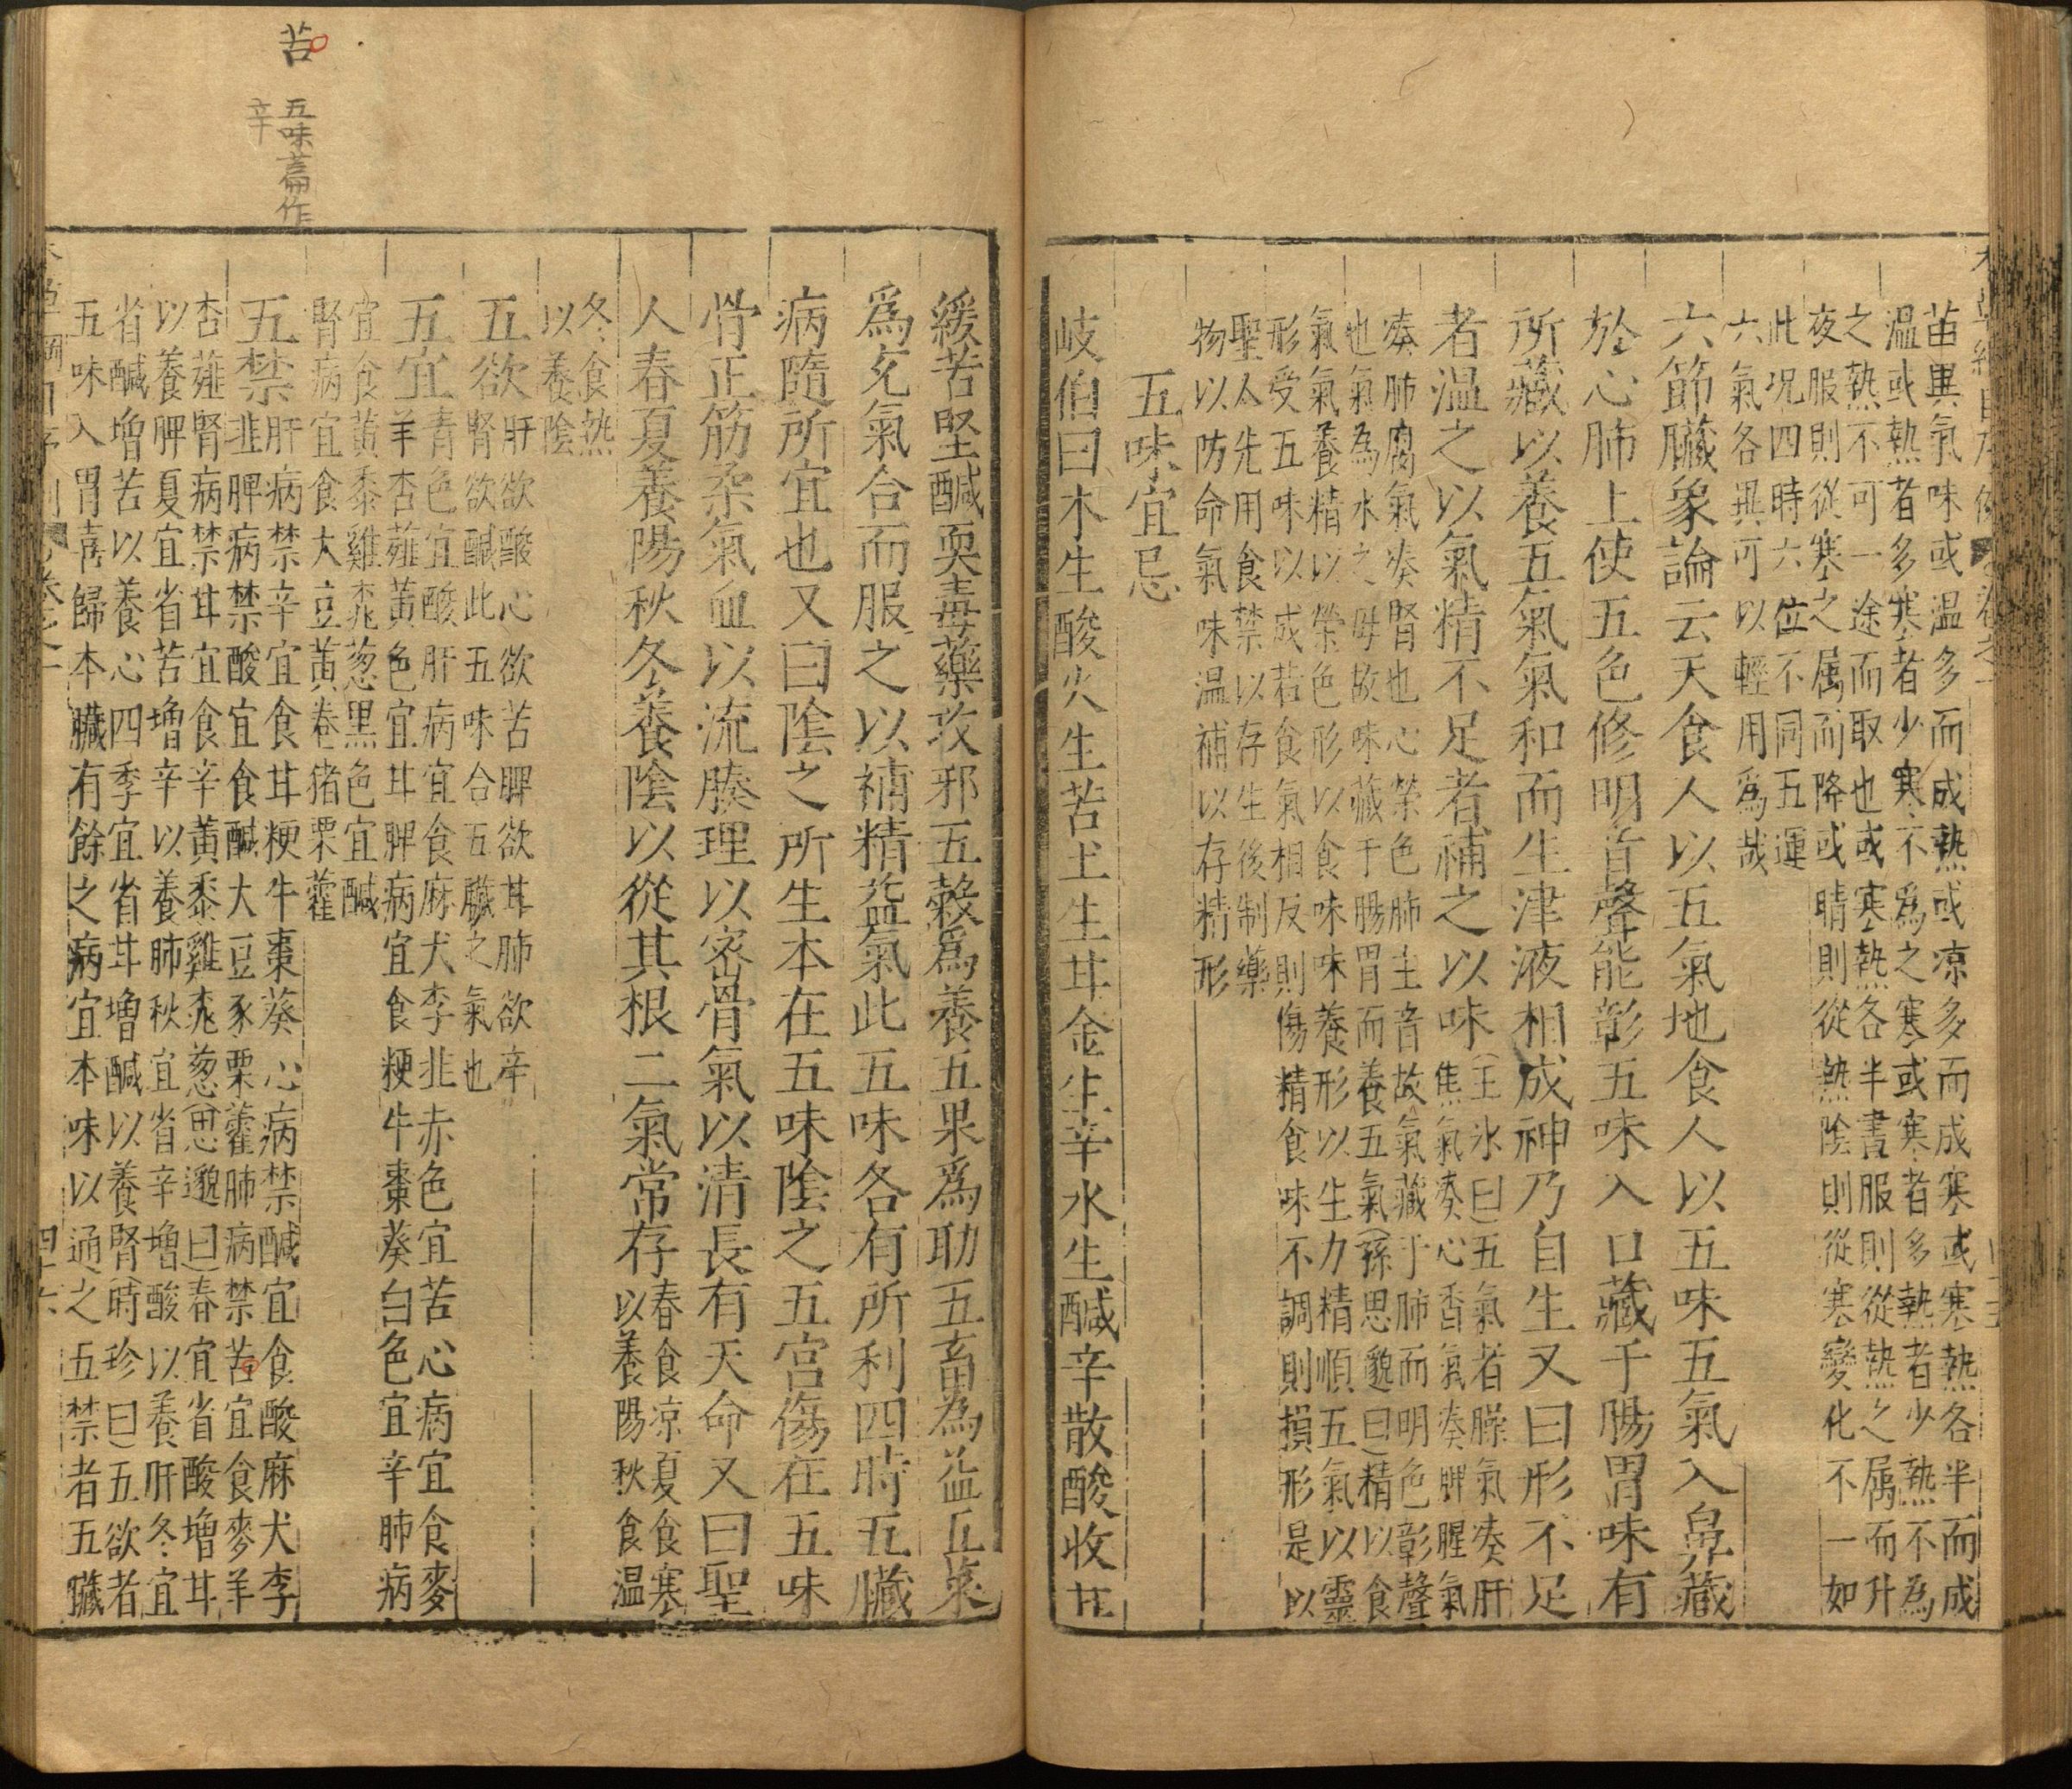 苗異氣味或温多而成熱或凉多而成寒或寒熱各半而成
温或熱者多寒者少寒不爲之寒或寒者多熱者少熱不爲
之熱不可一途而取也或寒熱各半晝服則從熱之属而升
夜服則從寒之属而降或晴則從熱陰則從寒變化不一如
此况四時六位不同五運
六氣各異可以輕用爲哉
六節臟象論云天食人以五氣地食人以五味五氣入鼻藏
於心肺上使五色修明音聲能彰五味入口藏于腸胃味有
所藏以養五氣氣和而生津液相成神乃自生又曰形不足
者温之以氣精不足者補之以味
王氷曰五氣者臊氣凑肝
焦氣凑心香氣凑脾腥氣
凑肺腐氣凑腎也心榮色肺主音故氣藏于肺而明色彰聲
也氣為水之母故味藏于腸胃而養五氣孫思邈曰精以食
氣氣養精以榮色形以食味味養形以生力精順五氣以靈
形受五味以成若食氣相反則傷精食味不調則損形是以
聖人先用食禁以存生後制藥
物以防命氣味温補以存精形
五味宜忌
岐伯曰木生酸火生苦土生甘金生辛水生鹹辛散酸收甘
緩苦堅鹹耎毒藥攻邪五穀爲養五果爲助五畜為益五菜
爲充氣合而服之以補精益氣此五味各有所利四時五臟
病隨所宜也又曰陰之所生本在五味陰之五宫傷在五味
骨正筋柔氣血以流腠理以密骨氣以清長有天命又曰聖
人春夏養陽秋冬養陰以從其根二氣常存
春食凉夏食寒
以養陽秋食温
冬食熱
以養陰
五欲
肝欲酸心欲苦脾欲甘肺欲辛
腎欲鹹此五味合五臟之氣也
五宜
青色宜酸肝病宜食麻犬李韭赤色宜苦心病宜食麥
羊杏薤黄色宜甘脾病宜食粳牛棗葵白色宜辛肺病
宜食黄黍雞桃葱黑色宜鹹
腎病宜食大豆黄卷猪栗藿
五禁
肝病禁辛宜食甘粳牛棗葵心病禁鹹宜食酸麻犬李
韭脾病禁酸宜食鹹大豆豕栗藿肺病禁苦宜食麥羊
杏薤腎病禁甘宜食辛黄黍雞桃葱思邈曰春宜省酸增甘
以養脾夏宜省苦增辛以養肺秋宜省辛增酸以養肝冬宜
省鹹增苦以養心四季宜省甘增鹹以養腎時珍曰五欲者
五味入胃喜歸本臟有餘之病宜本味以通之五禁者五臟
四十六
苦
五味篇作
辛